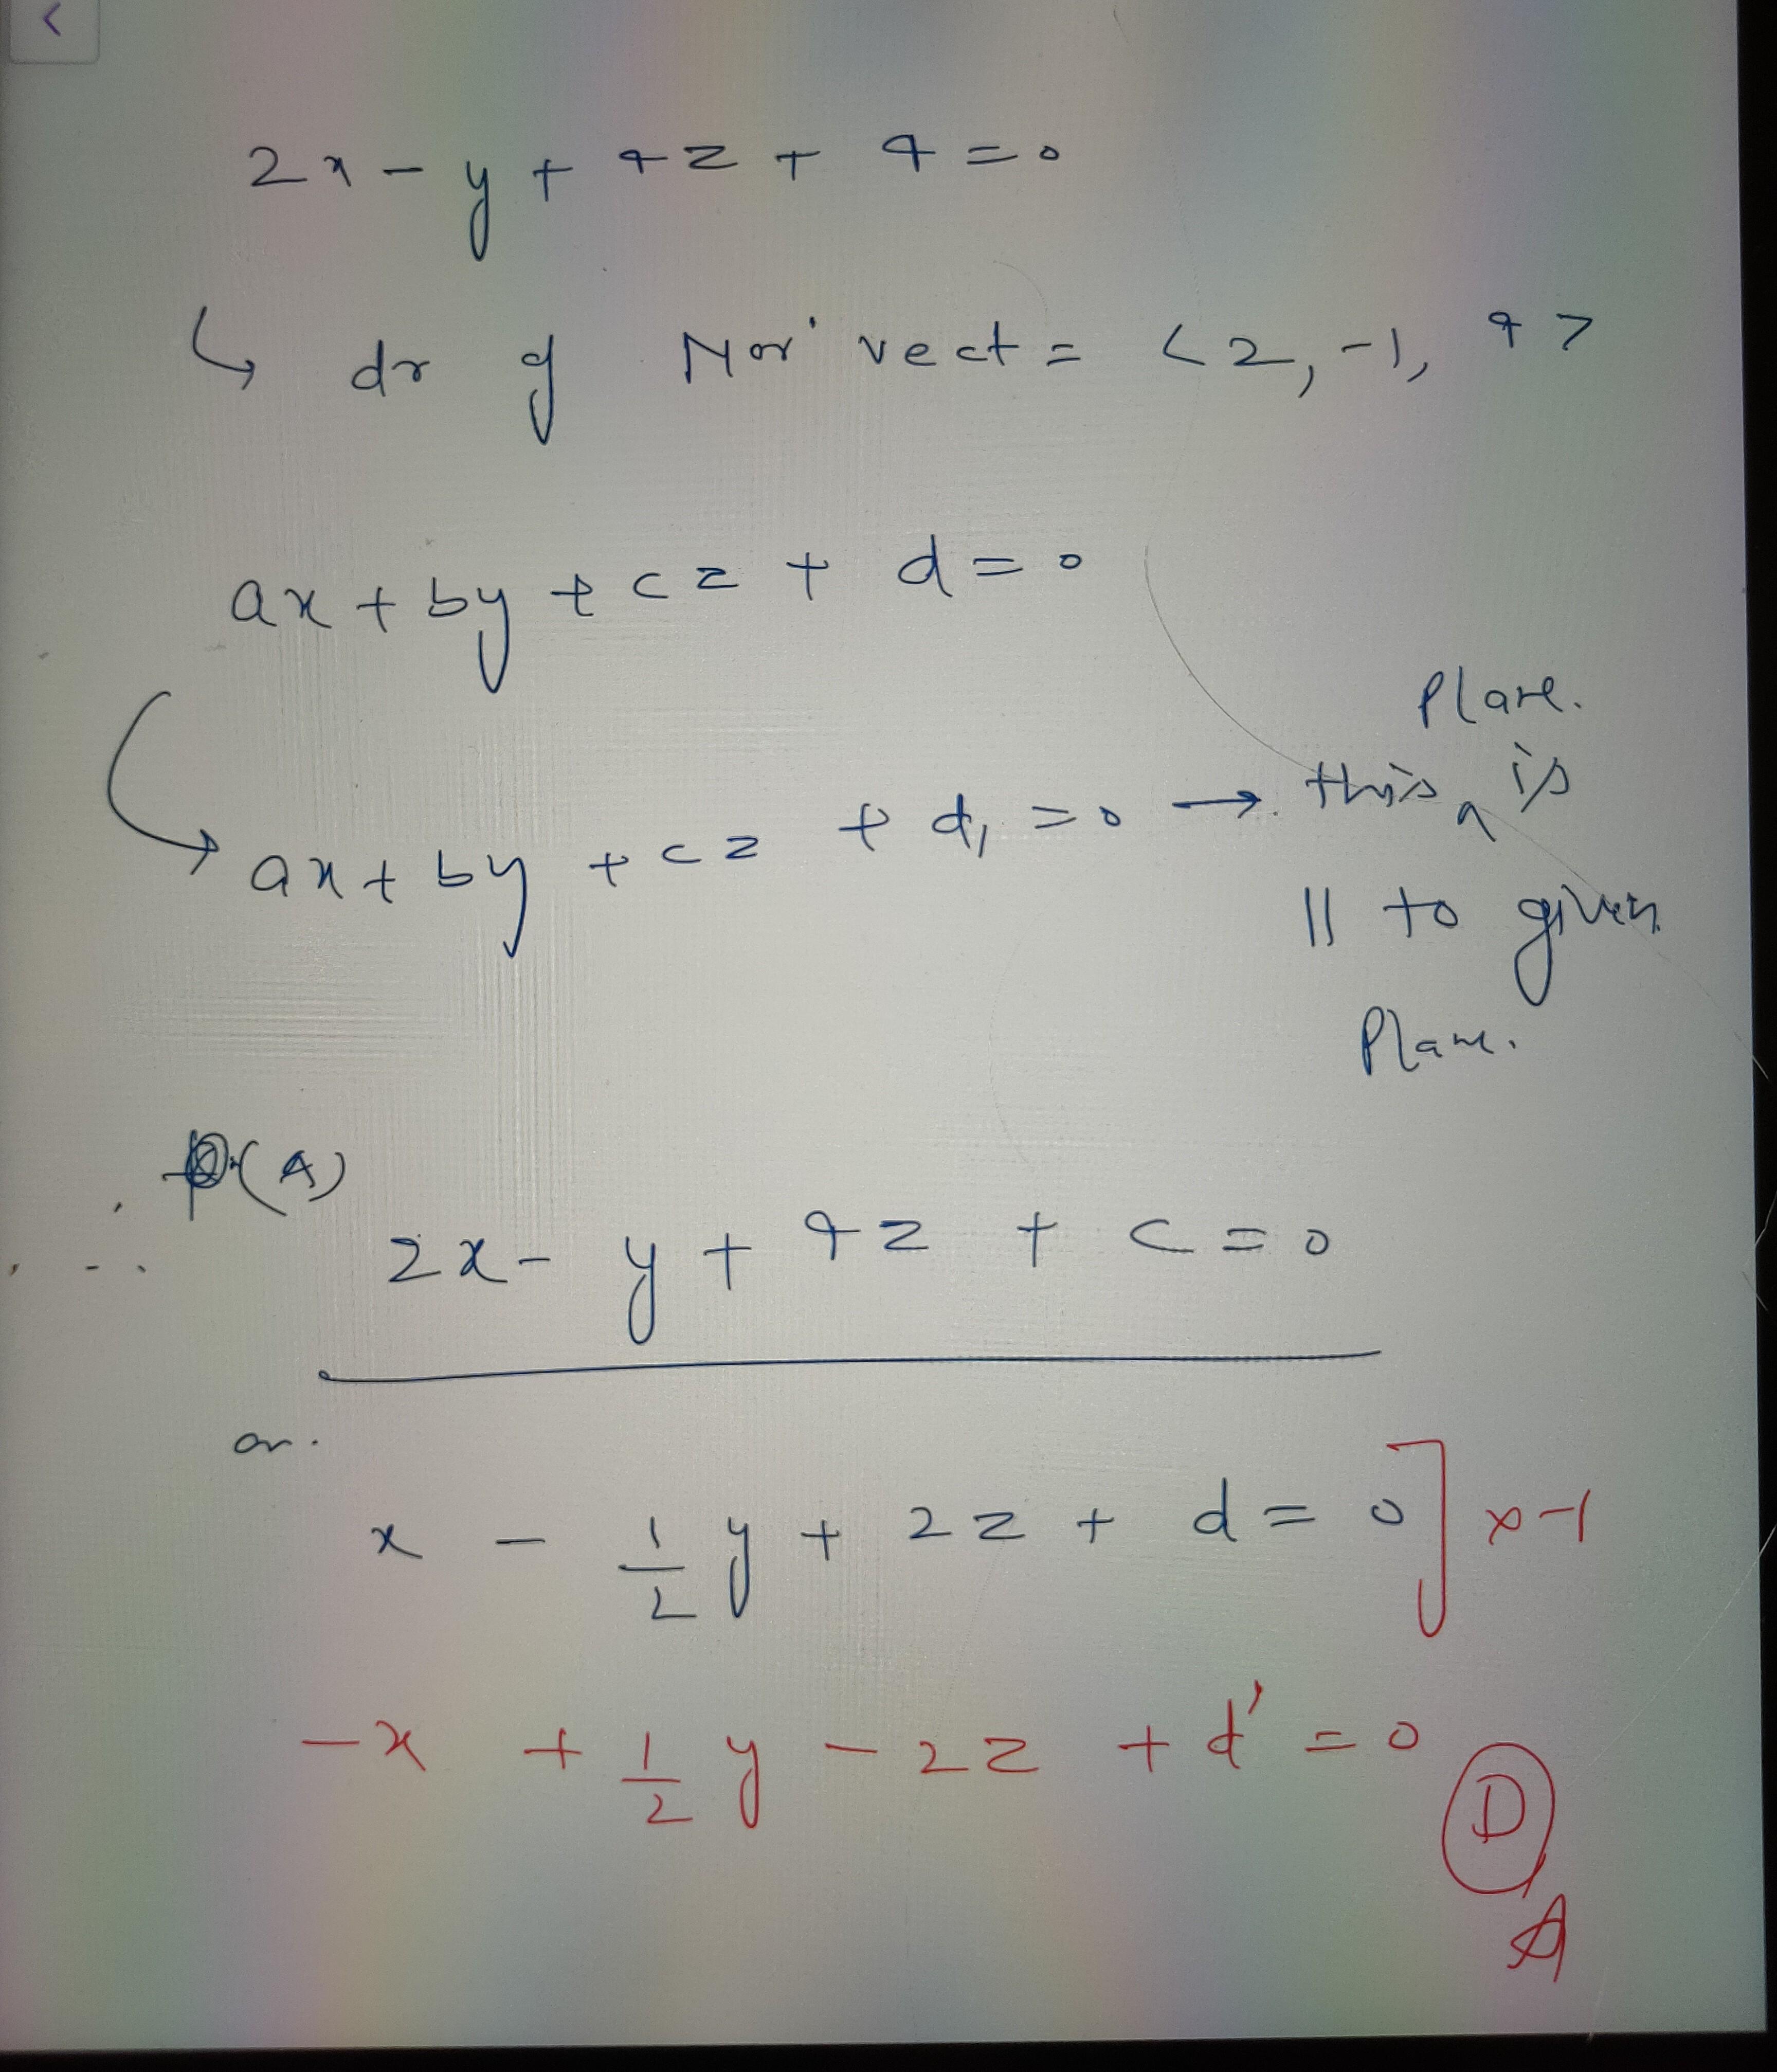 2x - y + 4z + 4 = 0
↳ dr of Nor' vect = <2, -1, 4>
ax + by + cz + d = 0
↳ ax + by + cz + d₁ = 0 → this ^ is
Plane.
|| to given
Plane.
(A)
∴ 2x - y + 4z + c = 0
or.
x - 1/2 y + 2z + d = 0] x-1
-x + 1/2 y - 2z + d' = 0
D
A